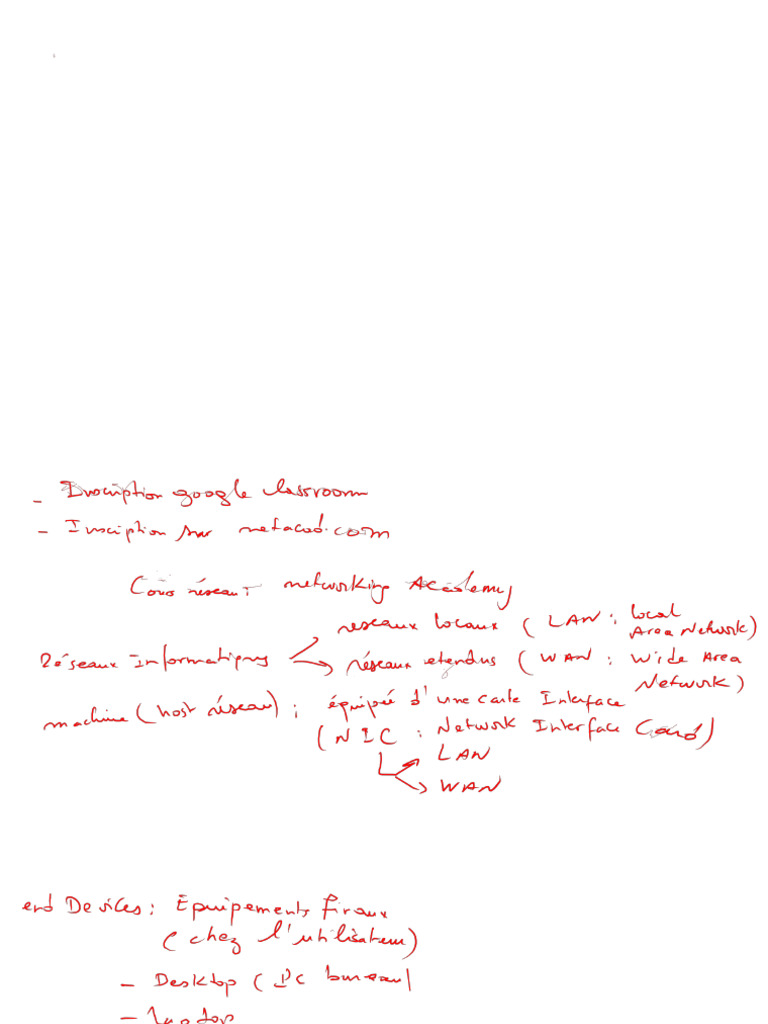 - Inscription google classroom
- Inscription sur netacad.com
Cours réseau : networking Academy
réseaux locaux ( LAN : local
Area Network)
Réseaux Informatiques
réseaux etendus ( WAN : Wide Area
Network )
machine (host réseau) : équipée d'une carte Interface
( NIC : Network Interface Card)
LAN
WAN
end Devices : Equipements finaux
( chez l'utilisateur)
- Desktop ( PC bureau)
- Laptop